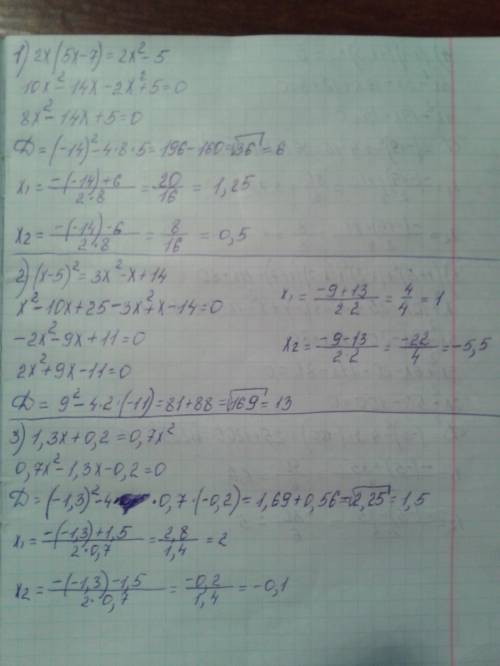 1) 2x(5x-7)=2x²-5
10x²-14x-2x²+5=0
8x²-14x+5=0
Д=(-14)²-4·8·5=196-160=√36=6
x₁=-(-14)+6/2·8=20/16=1,25
x₂=-(-14)-6/2·8=8/16=0,5
2) (x-5)²=3x²-x+14
x²-10x+25-3x²+x-14=0
-2x²-9x+11=0
2x²+9x-11=0
Д=9²-4·2·(-11)=81+88=√169=13
x₁=-9+13/2·2=4/4=1
x₂=-9-13/2·2=-22/4=-5,5
3) 1,3x+0,2=0,7x²
0,7x²-1,3x-0,2=0
Д=(-1,3)²-4·0,7·(-0,2)=1,69+0,56=√2,25=1,5
x₁=-(-1,3)+1,5/2·0,7=2,8/1,4=2
x₂=-(-1,3)-1,5/2·0,7=-0,2/1,4=-0,1